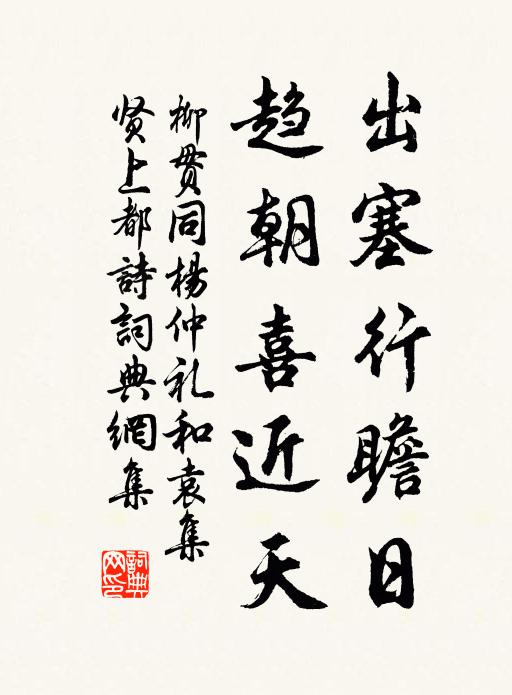 出塞行瞻日
趋朝喜近天
柳贯同楊仲礼和袁集
贤上都詩詞典網集
詞典網印